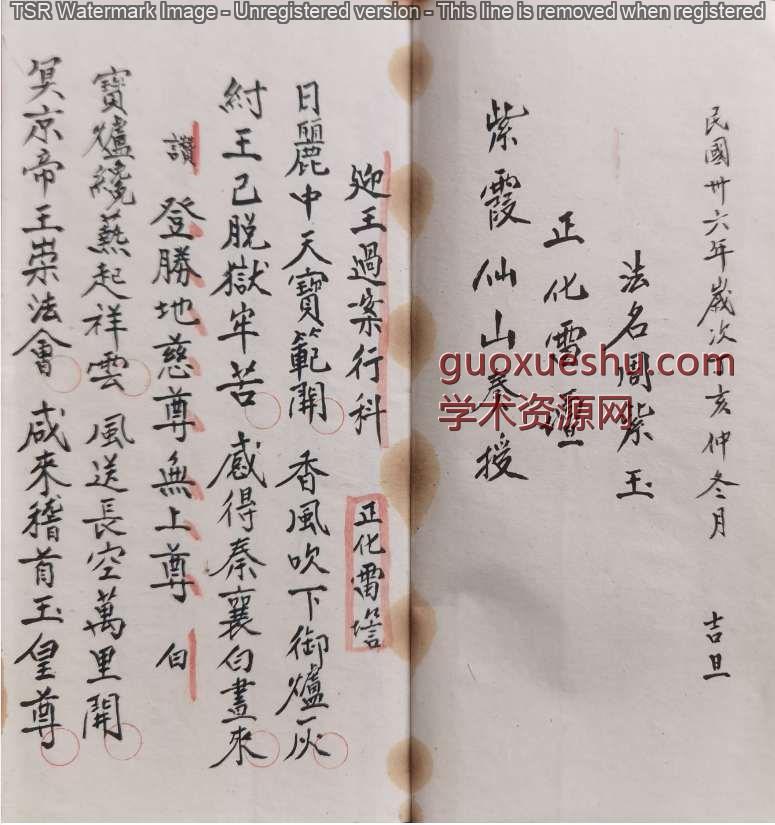 TSR Watermark Image - Unregistered version - This line is removed when registered
民國卅六年歲次丁亥仲冬月 吉旦
法名周紫玉
正化雷壇
紫霞仙山奏授
guoxueshu.com
学术资源网
迎王過案行科 正化雷壇
日麗中天寶範開 香風吹下御爐灰
紂王已脫獄牢苦 感得秦襄白晝來
讚 登勝地慈尊無上尊 白
寶爐纔爇起祥雲 風送長空萬里開
冥京帝王崇法會 咸來稽首玉皇尊